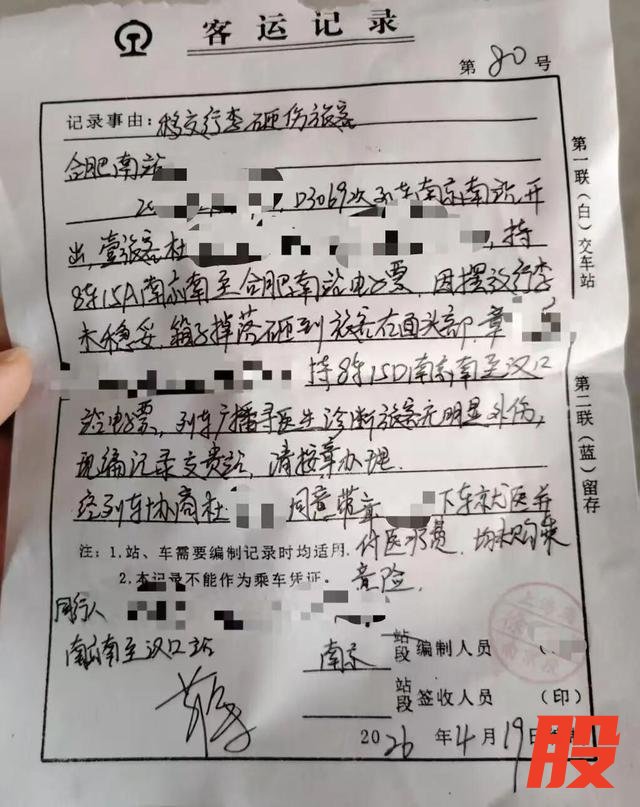 客运记录
第 80 号
记录事由：移交行李砸伤旅客
合肥南站
20 D3069次列车南京南站开
出，壹旅客杜 ，持
8车15A南京南至合肥南站电子票，因摆放行李
未稳妥，箱子掉落砸到旅客右面头部，章
持8车15D南京南至汉口
站电子票，列车广播寻医生诊断旅客无明显外伤，
现编记录交贵站，请按章办理.
经列车协商杜 同意带章 下车就医并
付医药费，均未购乘
意险.
注：1.站、车需要编制记录时均适用.
2.本记录不能作为乘车凭证.
同行人
南京南至汉口站
南京 站段 编制人员
站段 签收人员 （印）
2026 年 4 月 19 日
第一联（白）交车站
第二联（蓝）留存
股